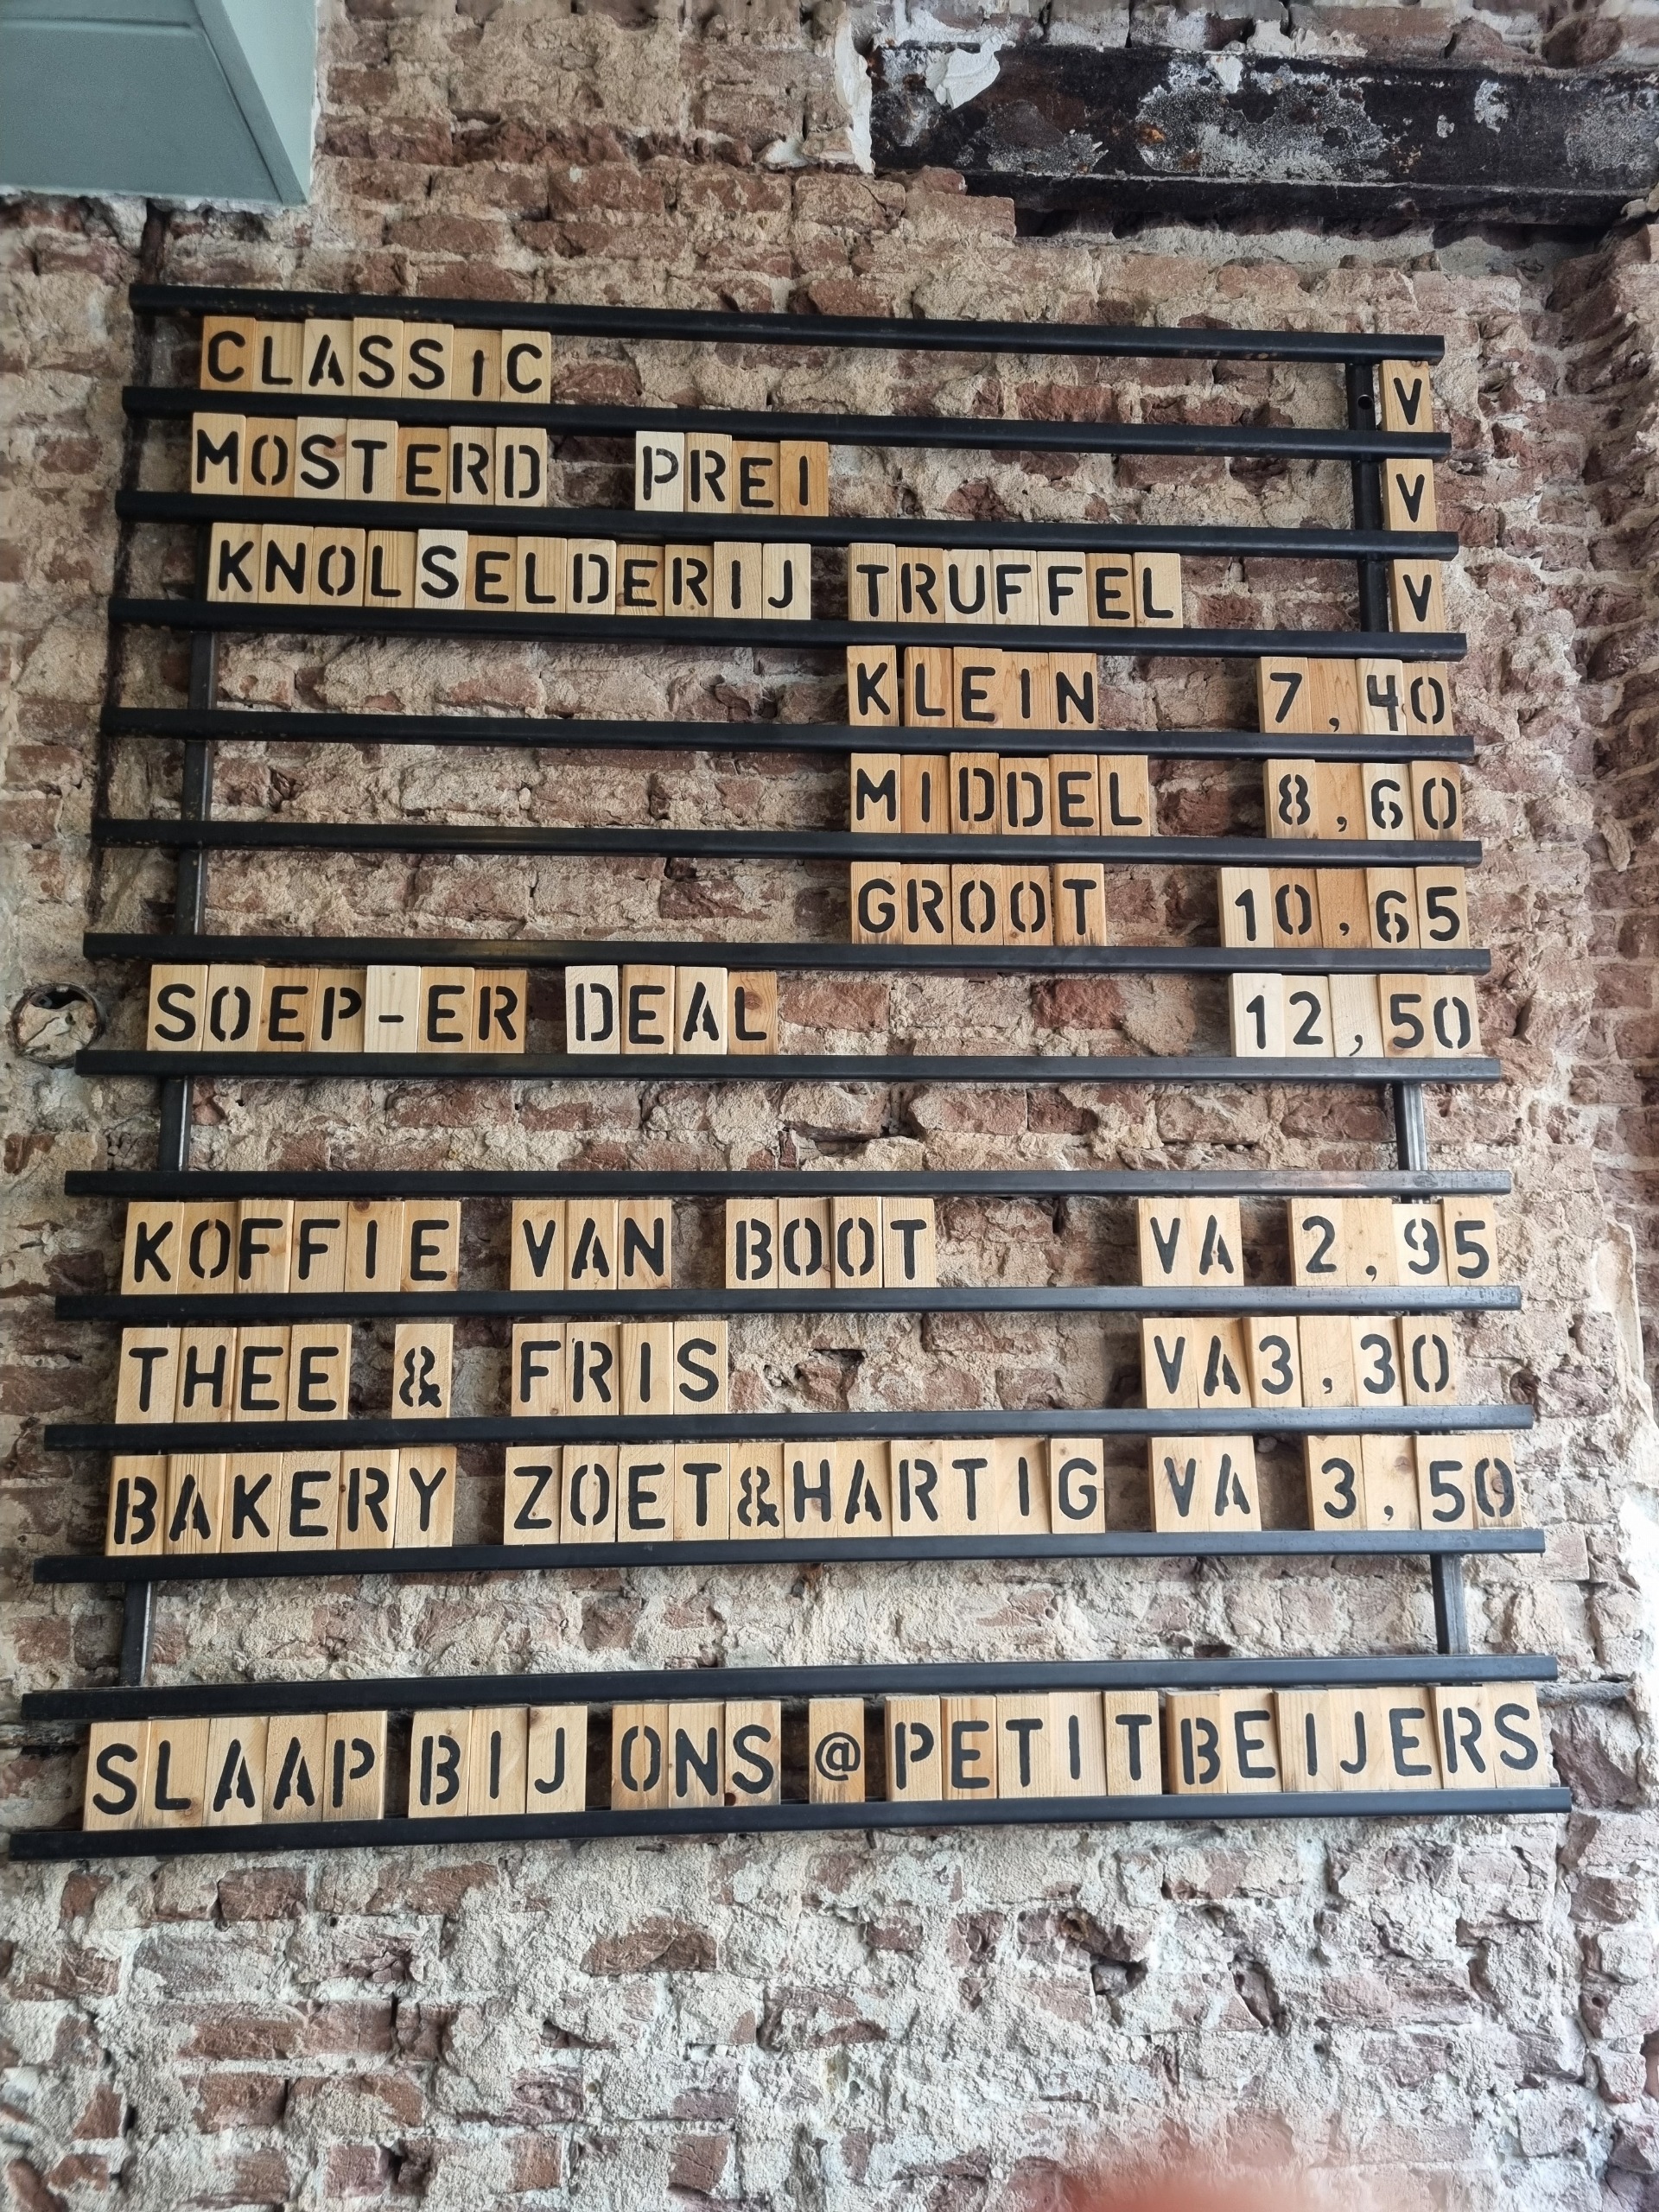 CLASSIC V
MOSTERD PREI V
KNOLSELDERIJ TRUFFEL V
KLEIN 7,40
MIDDEL 8,60
GROOT 10,65
SOEP-ER DEAL 12,50
KOFFIE VAN BOOT VA 2,95
THEE & FRIS VA3,30
BAKERY ZOET&HARTIG VA 3,50
SLAAP BIJ ONS @ PETIT BEIJERS